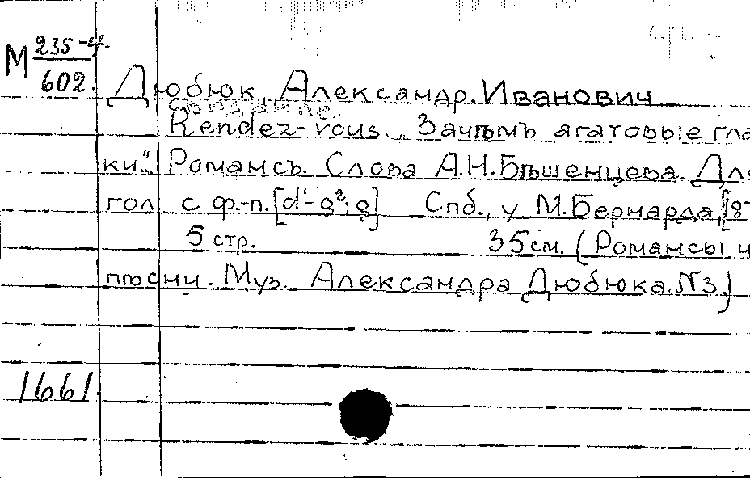 М 235-4
602.
Дюбюк, Александр Иванович
Rendez-vous. Зачѣмъ агатовые гла
ки". Романсъ. Слова А.Н.Бѣшенцева. Для
гол. с ф.-п. [d'-g²; g] Спб., у М.Бернарда, [18
5 стр. 35 см. (Романсы и
пѣсни. Муз. Александра Дюбюка. №3.)
1661